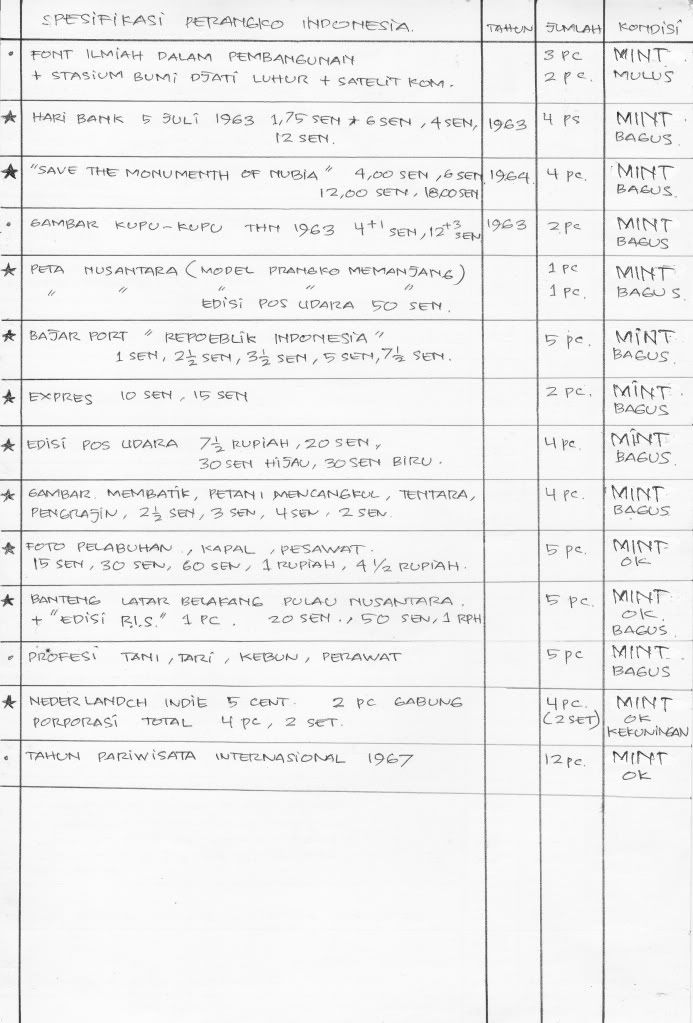 SPESIFIKASI PERANGKO INDONESIA. TAHUN JUMLAH KONDISI
• FONT ILMIAH DALAM PEMBANGUNAN 3 PC MINT
+ STASIUM BUMI DJATI LUHUR + SATELIT KOM. 2 PC. MULUS
★ HARI BANK 5 JULI 1963 1,75 SEN + 6 SEN, 4 SEN, 1963 4 PS MINT
12 SEN. BAGUS.
★ "SAVE THE MONUMENTH OF NUBIA" 4,00 SEN, 6 SEN 1964. 4 PC. MINT
12,00 SEN, 18,00 SEN BAGUS.
• GAMBAR KUPU-KUPU THN 1963 4+1 SEN, 12+3 SEN 1963 2 PC MINT
BAGUS
★ PETA NUSANTARA (MODEL PRANGKO MEMANJANG) 1 PC MINT
" " " " " 1 PC. BAGUS.
EDISI POS UDARA 50 SEN.
★ BAJAR PORT " REPOEBLIK INDONESIA" 5 PC. MINT
1 SEN, 2½ SEN, 3½ SEN, 5 SEN, 7½ SEN. BAGUS.
★ EXPRES 10 SEN, 15 SEN 2 PC. MINT.
BAGUS
★ EDISI POS UDARA 7½ RUPIAH, 20 SEN, 4 PC. MINT
30 SEN HIJAU, 30 SEN BIRU. BAGUS.
★ GAMBAR MEMBATIK, PETANI MENCANGKUL, TENTARA, 4 PC. MINT
PENGRAJIN, 2½ SEN, 3 SEN, 4 SEN, 2 SEN. BAGUS.
★ FOTO PELABUHAN, KAPAL, PESAWAT. 5 PC. MINT
15 SEN, 30 SEN, 60 SEN, 1 RUPIAH, 4 1/2 RUPIAH. OK
★ BANTENG LATAR BELAKANG PULAU NUSANTARA. 5 PC. MINT
+ "EDISI R.I.S." 1 PC. 20 SEN., 50 SEN, 1 RPH OK.
BAGUS.
• PROFESI TANI, TARI, KEBUN, PERAWAT 5 PC MINT
BAGUS
★ NEDERLANDCH INDIE 5 CENT. 2 PC GABUNG 4 PC. MINT
PORPORASI TOTAL 4 PC, 2 SET. (2 SET) OK
KEKUNINGAN
• TAHUN PARIWISATA INTERNASIONAL 1967 12 PC. MINT
OK